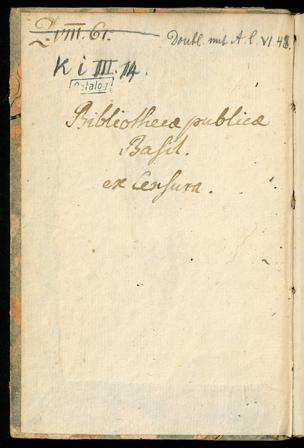 VIII. 61.
Doubl. mit A. l. VI. 48.
K i III. 14.
Catalog
Bibliothecæ publicæ
Basil.
ex Censura.